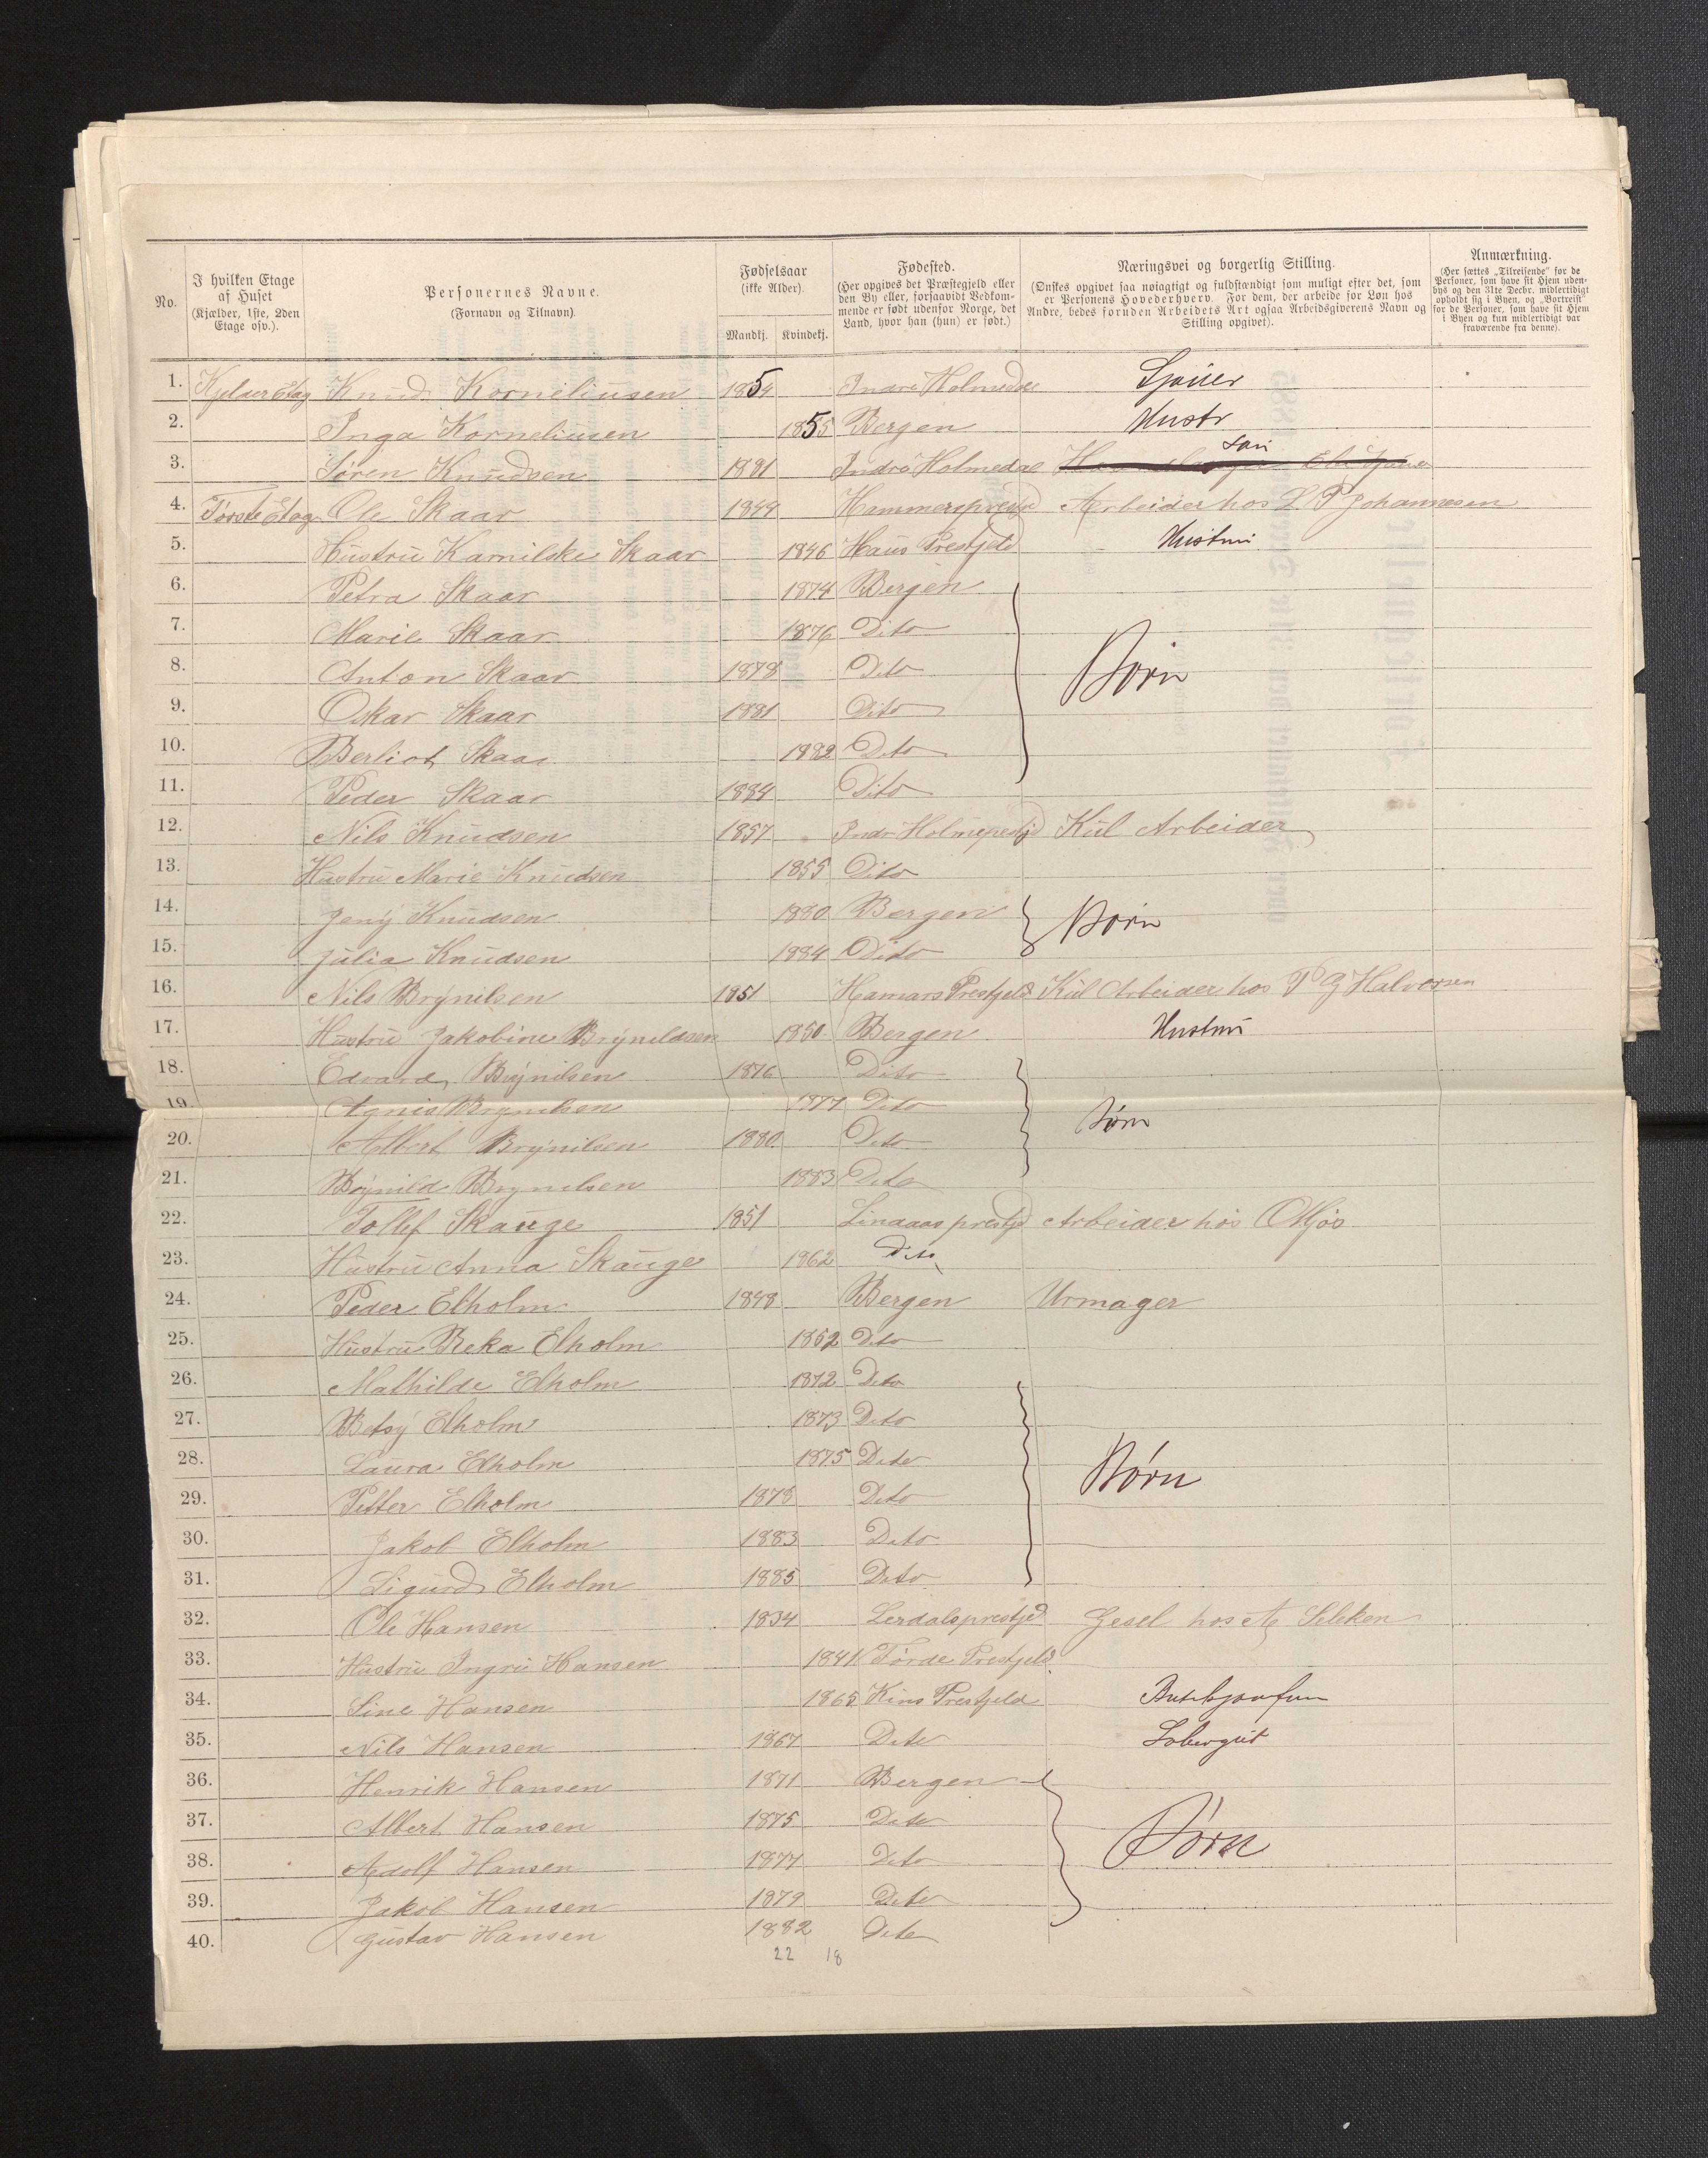 No.
I hvilken Etage af Huset (Kjælder, 1ste, 2den Etage osv.).
Personernes Navne. (Fornavn og Tilnavn).
Fødselsaar (ikke Alder).
Mandkj. Kvindekj.
Fødested. (Her opgives det Præstegjeld eller den By eller, forsaavidt Vedkommende er født udenfor Norge, det Land, hvor han (hun) er født.)
Næringsvei og borgerlig Stilling. (Ønskes opgivet saa nøiagtigt og fuldstændigt som muligt efter det, som er Personens Hovederhverv. For dem, der arbeide for Løn hos Andre, bedes foruden Arbeidets Art ogsaa Arbeidsgiverens Navn og Stilling opgivet).
Anmærkning. (Her sættes „Tilreisende" for de Personer, som have sit Hjem udenbys og den 31te Decbr. midlertidigt opholdt sig i Byen, og „Bortreist" for de Personer, som have sit Hjem i Byen og kun midlertidigt var fraværende fra denne).
1. Kjelder Etag Knud Korneliusen 1854 Indre Holmedal Sjauer
2. Inga Korneliusen 1855 Bergen Hustr
3. Søren Knudsen 1881 Indre Holmedal Søn
4. Første Etag Ole Skaar 1849 Arbeider hos L P Johannesen
5. Hustru Karnilske Skaar 1846 Haus Prestjeld Hustru
6. Petra Skaar 1874 Bergen
7. Marie Skaar 1876 Dito
8. Anton Skaar 1878 Dito Børn
9. Oskar Skaar 1881 Dito
10. Berliot Skaar 1882 Dito
11. Peder Skaar 1884 Dito
12. Nils Knudsen 1857 Kul Arbeider
13. Hustru Marie Knudsen 1855 Dito
14. Jeny Knudsen 1880 Bergen Børn
15. Julia Knudsen 1884 Dito
16. Nils Brynilsen 1851 Hamars Prestjeld Kul Arbeider hos P G Halvorsen
17. Hustru Jakobine Bryneldsen 1850 Bergen Hustru
18. Edvard Brynilsen 1876 Dito
19. Agnis Brynilsen 1877 Dito Børn
20. Albert Brynilsen 1880 Dito
21. Brynild Brynilsen 1883 Dito
22. Tollef Skauge 1851 Lindaas prestjd Arbeider hos
23. Hustru Anna Skauge 1862 Dito
24. Peder Elholm 1848 Bergen Urmager
25. Hustru Reka Elholm 1852 Dito
26. Mathilde Elholm 1872 Dito
27. Betsy Elholm 1873 Dito
28. Laura Elholm 1875 Dito Børn
29. Petter Elholm 1878 Dito
30. Jakob Elholm 1883 Dito
31. Sigurd Elholm 1885 Dito
32. Ole Hansen 1834 Lerdalsprestjd Gesel hos
33. Hustru Ingri Hansen 1841 Førde Prestjeld
34. Sine Hansen 1865 Kins Prestjeld
35. Nils Hansen 1867 Dito
36. Henrik Hansen 1871 Bergen
37. Albert Hansen 1875 Dito Børn
38. Adolf Hansen 1877 Dito
39. Jakob Hansen 1879 Dito
40. Gustav Hansen 1882 Dito
22 18